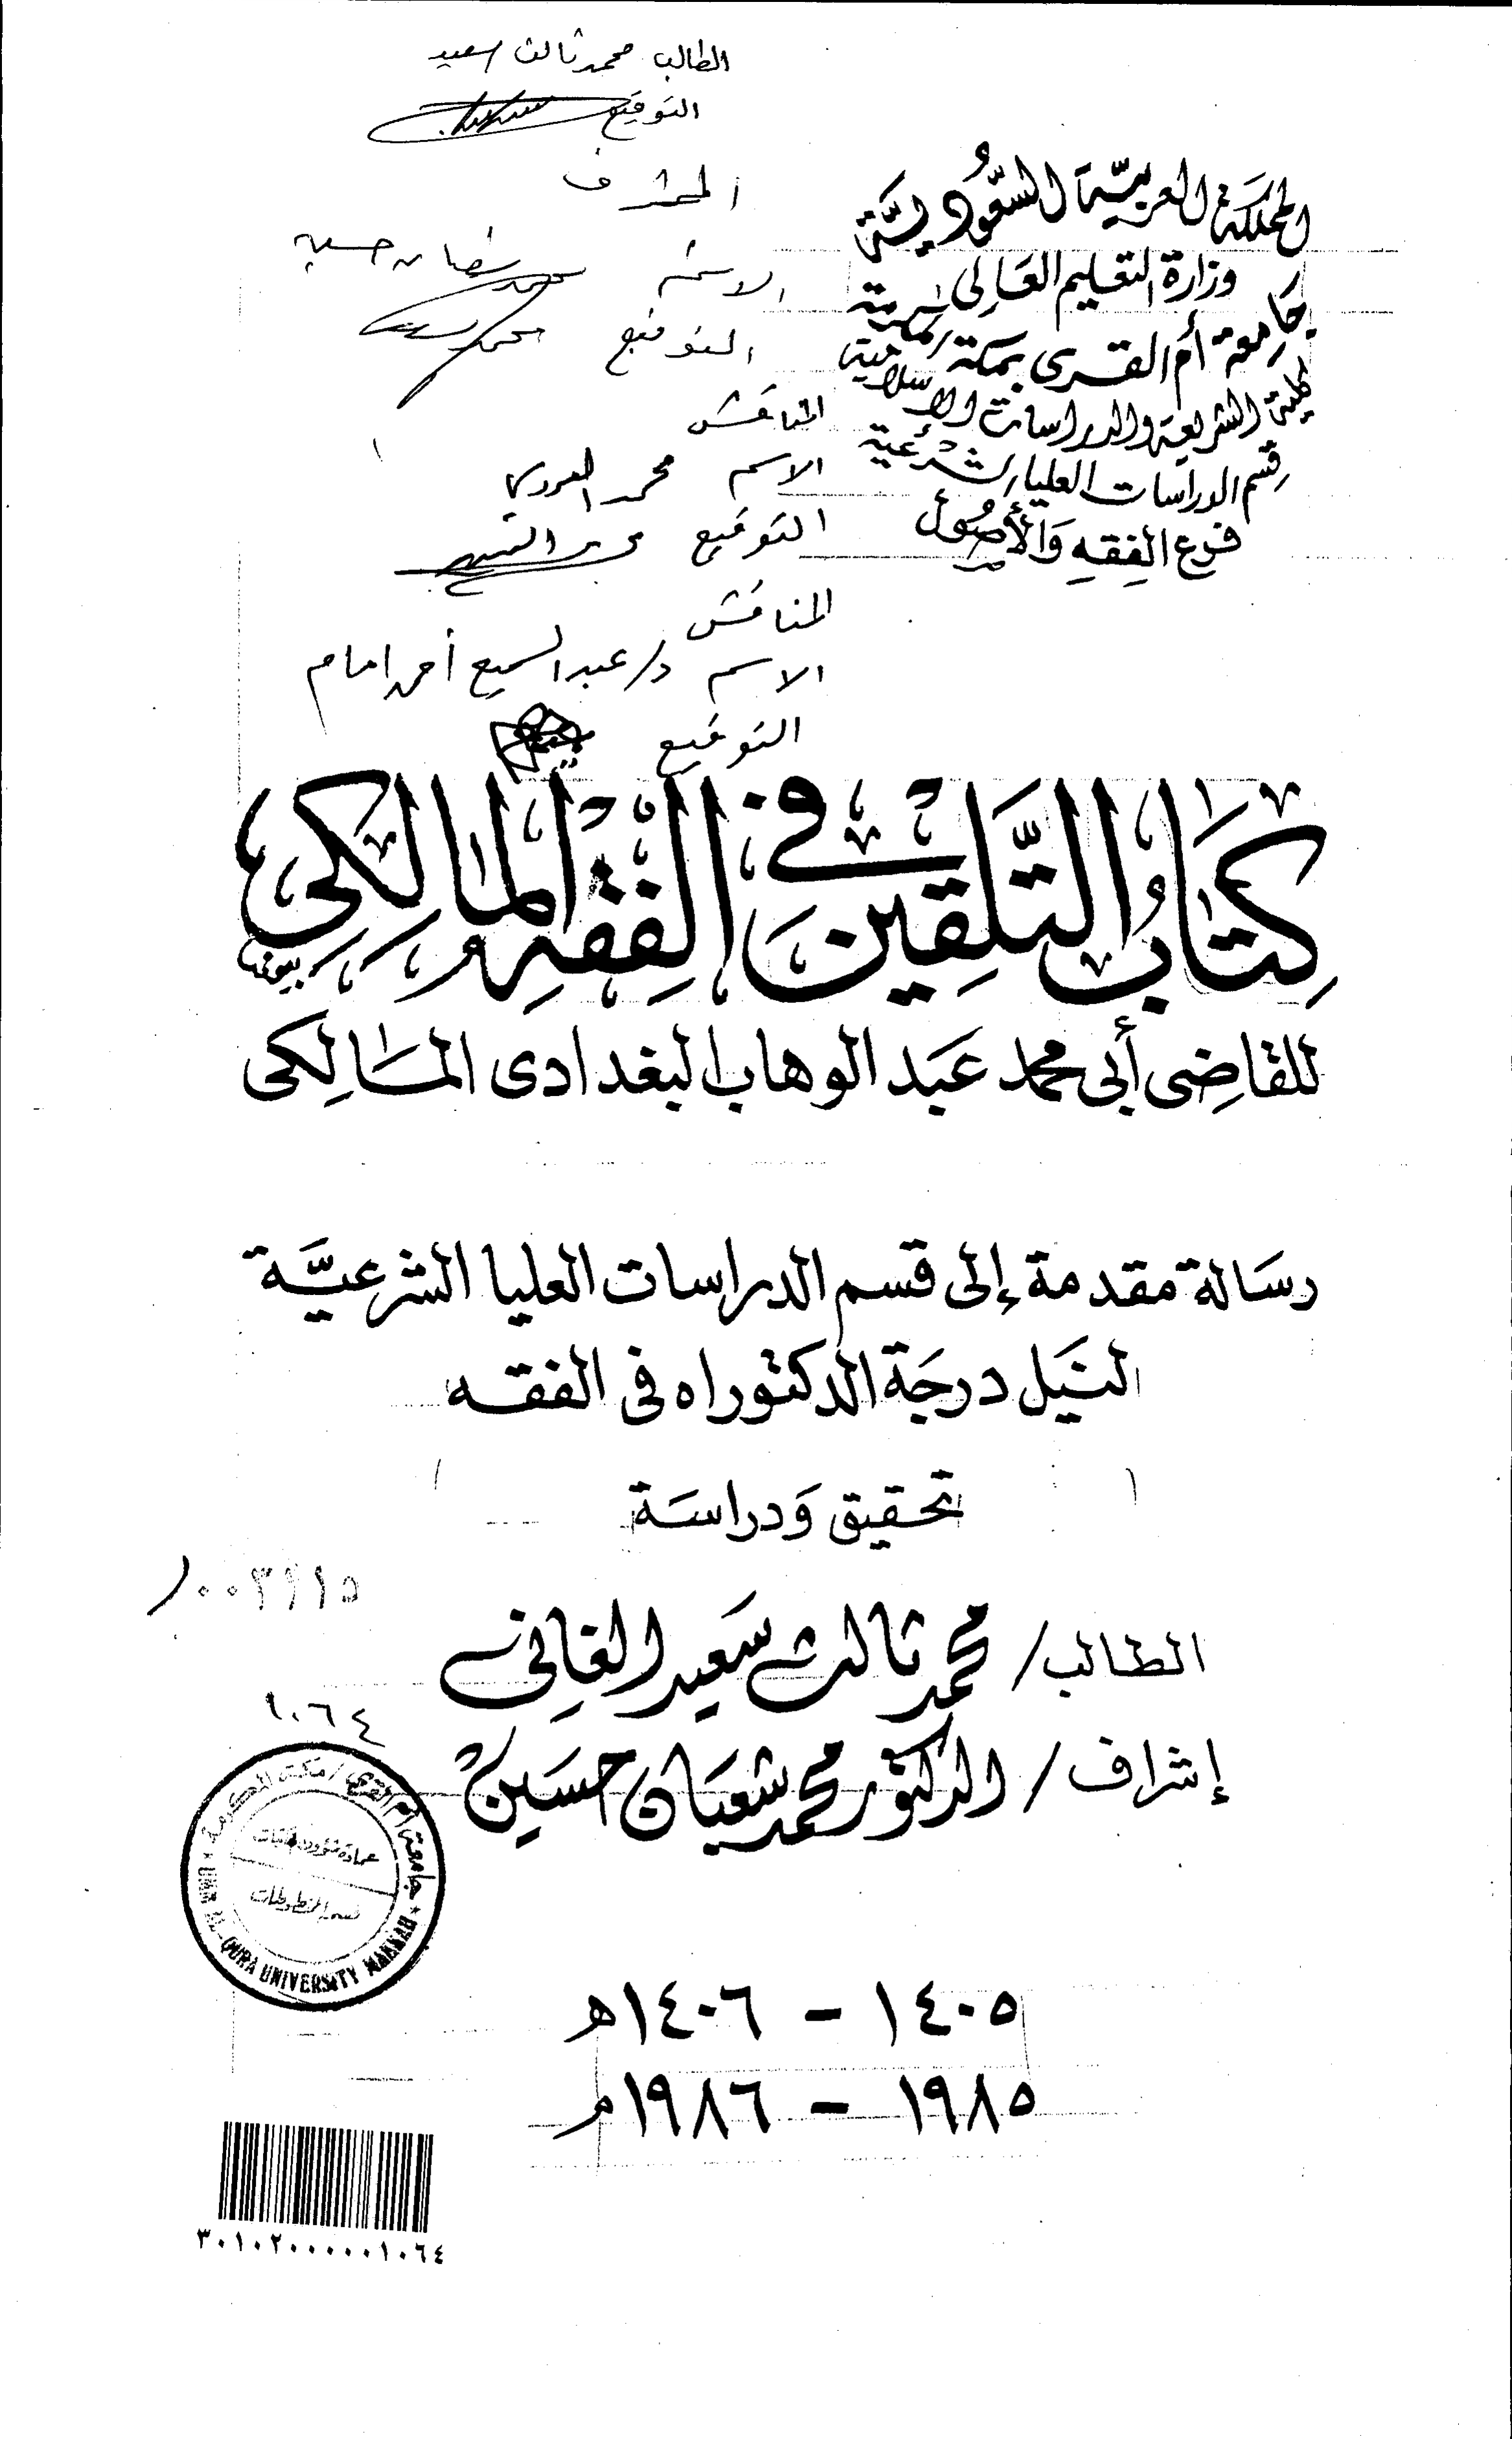 الطالب محمد ثالث سعيد
التوقيع
المملكة العربية السعودية
وزارة التعليم العالى
جامعة أم القرى بمكة المكرمة
كلية الشريعة والدراسات الإسلامية
قسم الدراسات العليا الشرعية
فرع الفقه والأصول
المشرف
الاسم محمد شعبان حسين
التوقيع
المناقش
الاسم محمد العروسي
التوقيع
المناقش
الاسم د/ عبد السميع أحمد امام
التوقيع
كِتَابُ التَّلقِين فى الفِقهِ المالِكِى
للقاضِى أبى محمد عَبد الوهاب البغدادى المَالِكى
رسَالة مقدمة إلى قسم الدراسات العليا الشرعيَّة
لنَيل درجَة الدكتوراه فى الفقه
تحقيق وَدراسَة
٠٠٣٩١٥
الطالب/ محمد ثالث سَعيد الغانى
إشراف/ الدكتور محمد شعبَان حسَين
١٠٦٤
جامعة أم القرى / مكة المكرمة
عمادة شؤون المكتبات
قسم المخطوطات
UMM AL-QURA UNIVERSITY MAKKAH
١٤٠٥ - ١٤٠٦ه
١٩٨٥ - ١٩٨٦م
٣٠١٠٢٠٠٠٠٠١٠٦٤